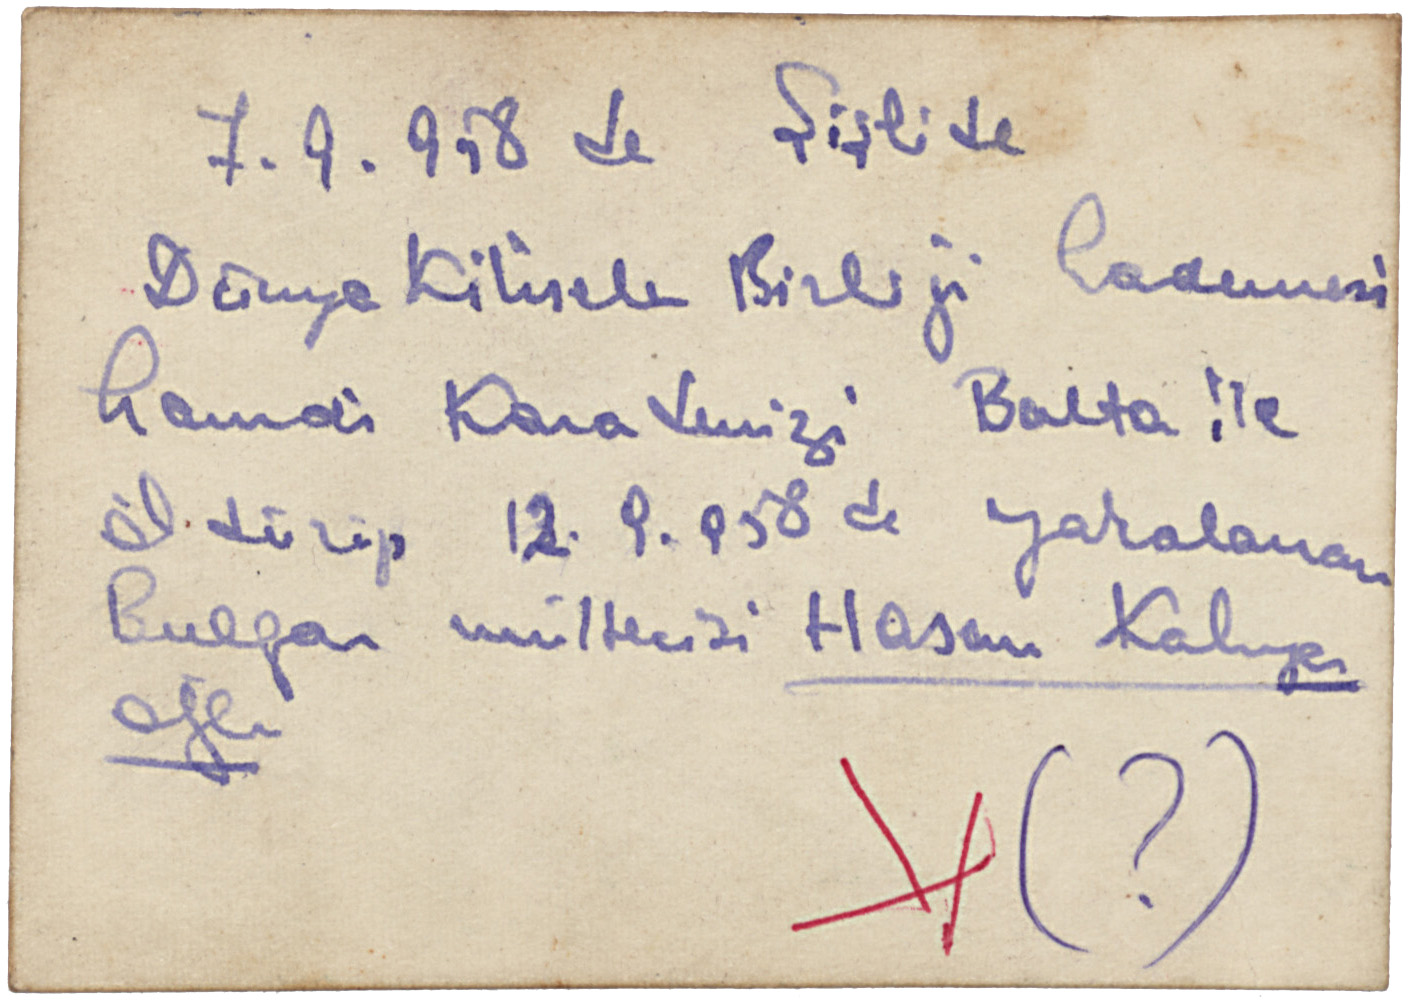 7.9.958 de Şişlide
Dünya Kiliseler Birliği hademesi
hamdi Karadenizi Balta ile
öldürüp 12.9.958 de yaralanan
bulgar mültecisi Hasan
oğlu
(?)